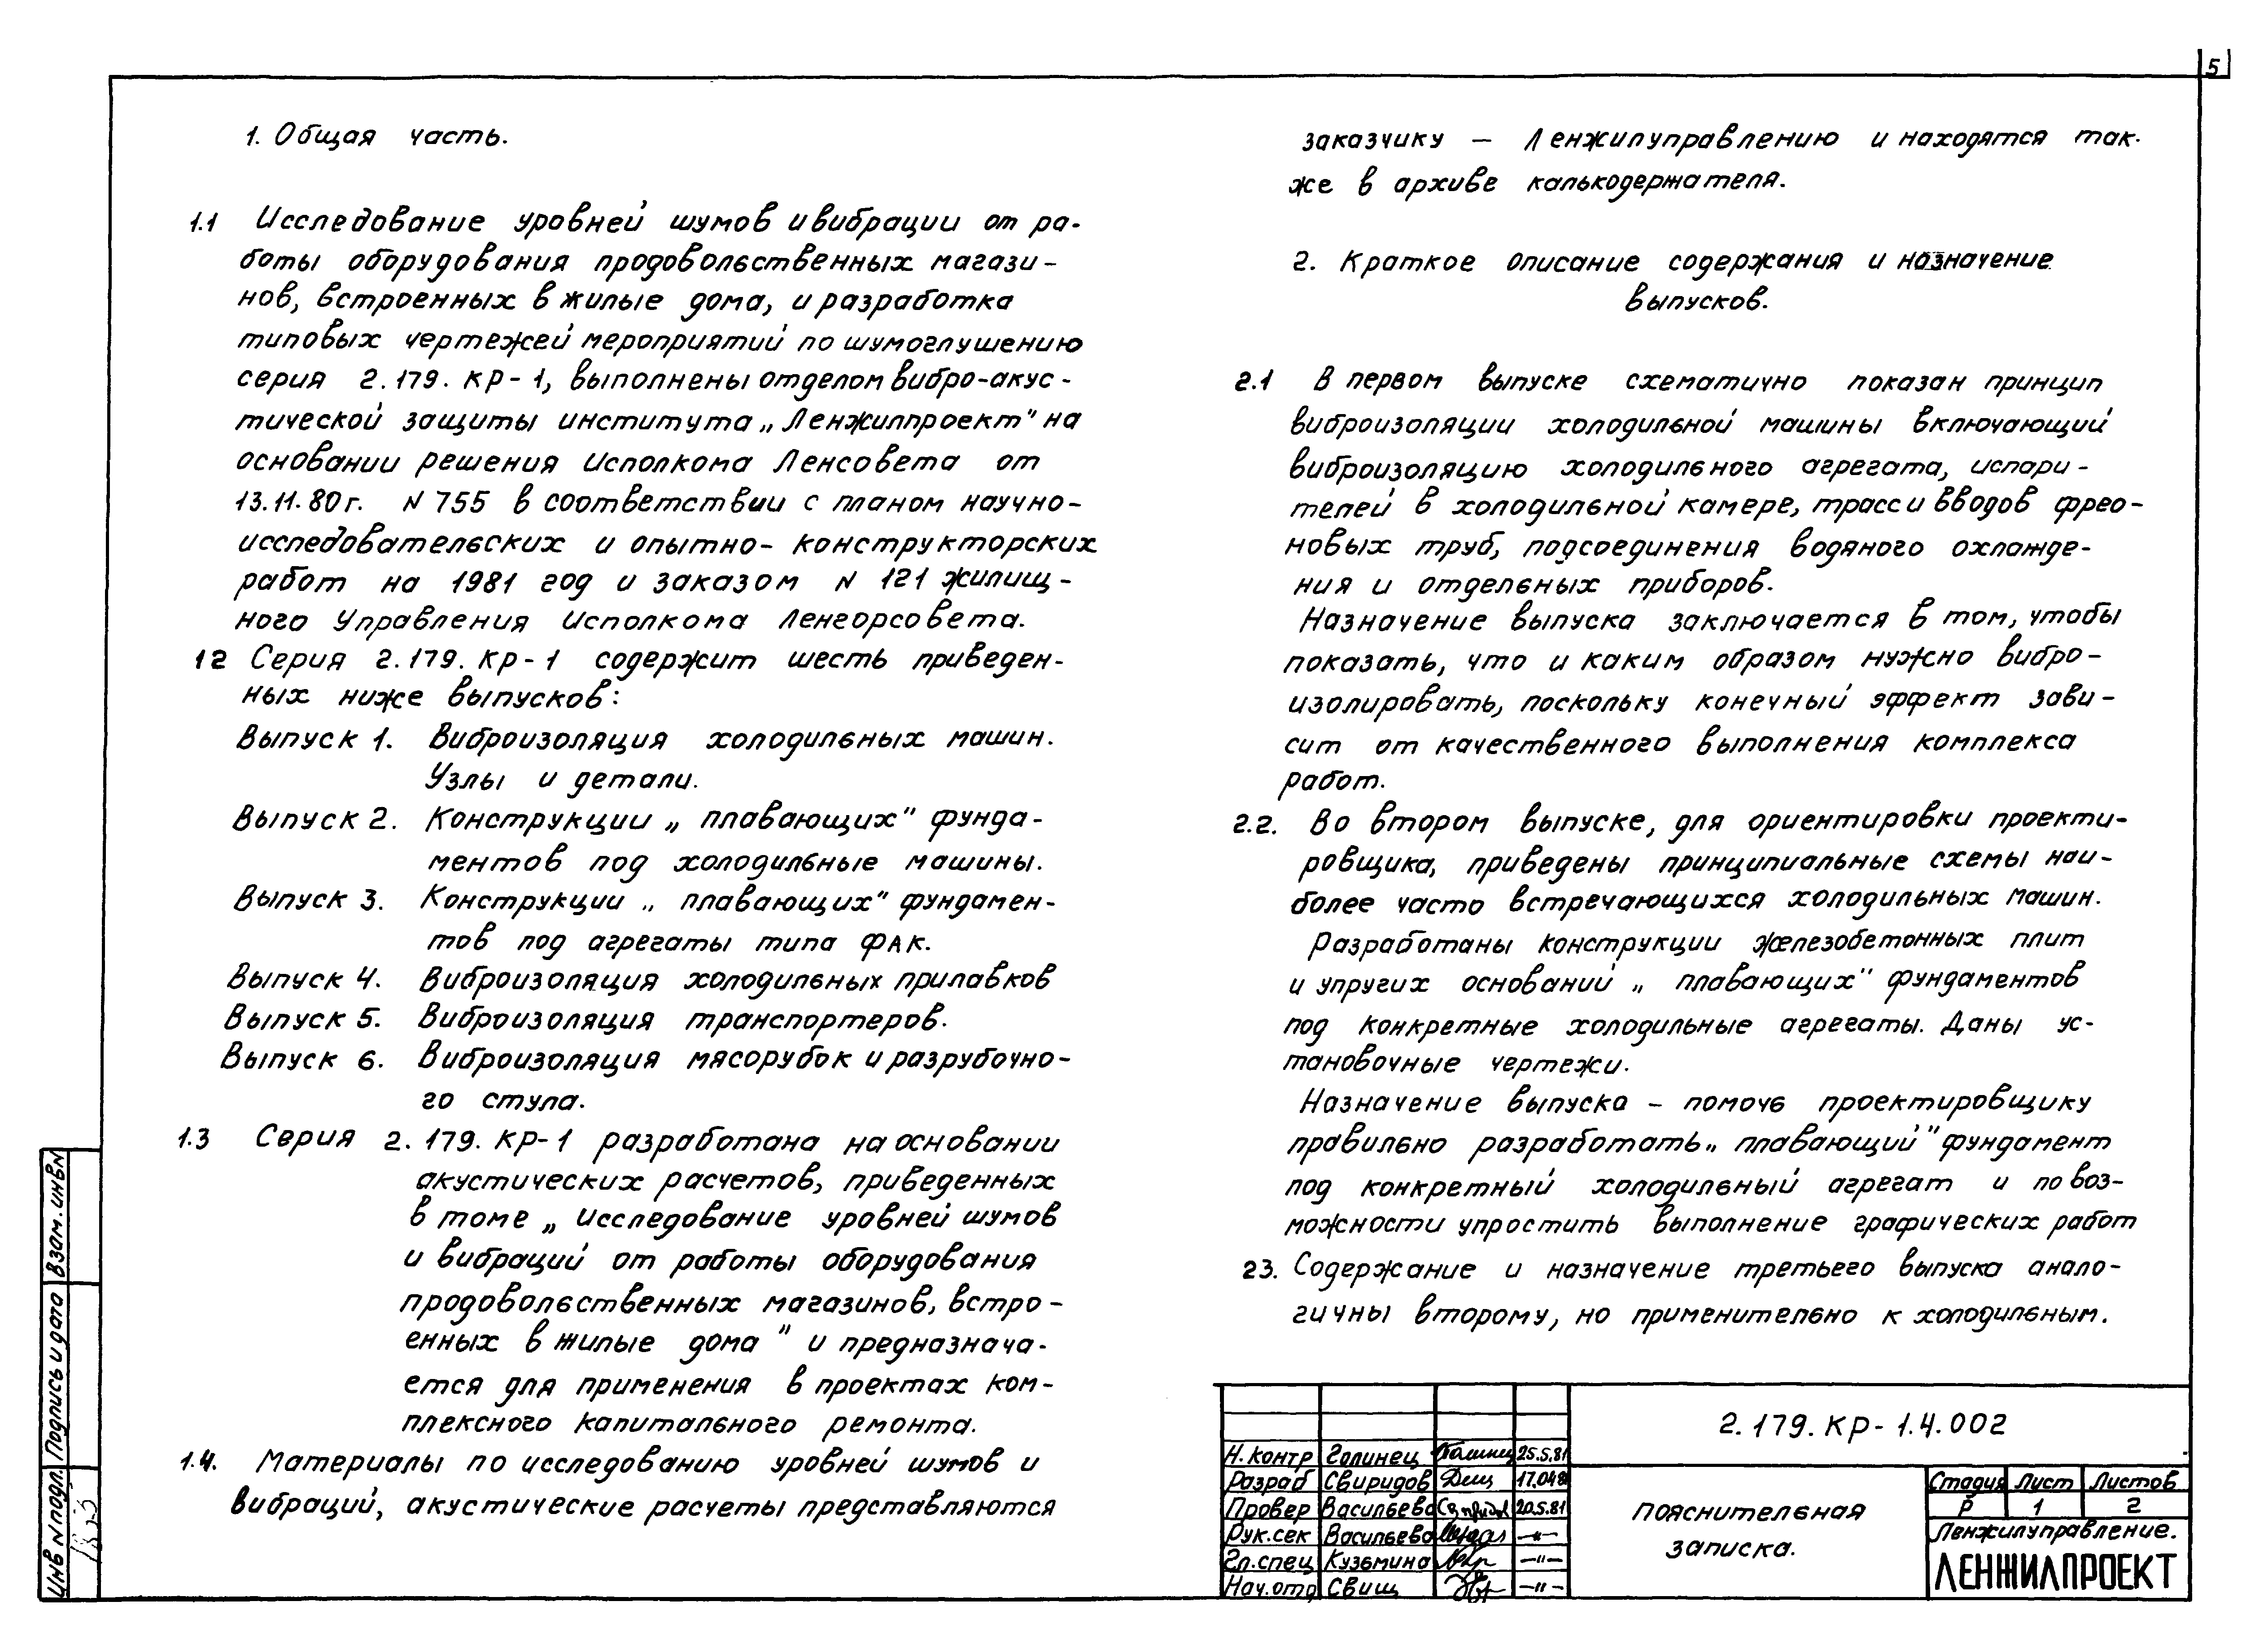 5
1. Общая часть.
1.1 Исследование уровней шумов и вибрации от ра-
боты оборудования продовольственных магази-
нов, встроенных в жилые дома, и разработка
типовых чертежей мероприятий по шумоглушению
серия 2.179.КР-1, выполнены отделом вибро-акус-
тической защиты института „Ленжилпроект" на
основании решения Исполкома Ленсовета от
13.11.80г. N 755 в соответствии с планом научно-
исследовательских и опытно-конструкторских
работ на 1981 год и заказом N 121 жилищ-
ного Управления Исполкома Ленгорсовета.
12 Серия 2.179.КР-1 содержит шесть приведен-
ных ниже выпусков:
Выпуск 1. Виброизоляция холодильных машин.
Узлы и детали.
Выпуск 2. Конструкции „плавающих" фунда-
ментов под холодильные машины.
Выпуск 3. Конструкции „плавающих" фундамен-
тов под агрегаты типа ФАК.
Выпуск 4. Виброизоляция холодильных прилавков
Выпуск 5. Виброизоляция транспортеров.
Выпуск 6. Виброизоляция мясорубок и разрубочно-
го стула.
1.3 Серия 2.179.КР-1 разработана на основании
акустических расчетов, приведенных
в томе „Исследование уровней шумов
и вибраций от работы оборудования
продовольственных магазинов, встро-
енных в жилые дома" и предназнача-
ется для применения в проектах ком-
плексного капитального ремонта.
1.4. Материалы по исследованию уровней шумов и
вибраций, акустические расчеты представляются
заказчику — Ленжилуправлению и находятся так-
же в архиве калькодержателя.
2. Краткое описание содержания и назначение
выпусков.
2.1 В первом выпуске схематично показан принцип
виброизоляции холодильной машины включающий
виброизоляцию холодильного агрегата, испари-
телей в холодильной камере, трасс и вводов фрео-
новых труб, подсоединения водяного охлажде-
ния и отдельных приборов.
Назначение выпуска заключается в том, чтобы
показать, что и каким образом нужно вибро-
изолировать, поскольку конечный эффект зави-
сит от качественного выполнения комплекса
работ.
2.2. Во втором выпуске, для ориентировки проекти-
ровщика, приведены принципиальные схемы наи-
более часто встречающихся холодильных машин.
Разработаны конструкции железобетонных плит
и упругих оснований „плавающих" фундаментов
под конкретные холодильные агрегаты. Даны ус-
тановочные чертежи.
Назначение выпуска — помочь проектировщику
правильно разработать „плавающий" фундамент
под конкретный холодильный агрегат и по воз-
можности упростить выполнение графических работ
23. Содержание и назначение третьего выпуска анало-
гичны второму, но применительно к холодильным.
2.179.КР-1.4.002
Н.контр Голинец 25.5.81
Разраб Свиридов
Провер Васильева 20.5.81
Рук.сек Васильева —"—
Гл.спец Кузьмина —"—
Нач.отд Свищ —"—
Пояснительная
записка.
Стадия Лист Листов
Р 1 2
Ленжилуправление.
ЛЕНЖИЛПРОЕКТ
Взам.инвN
Подпись и дата
Инв Nподл.